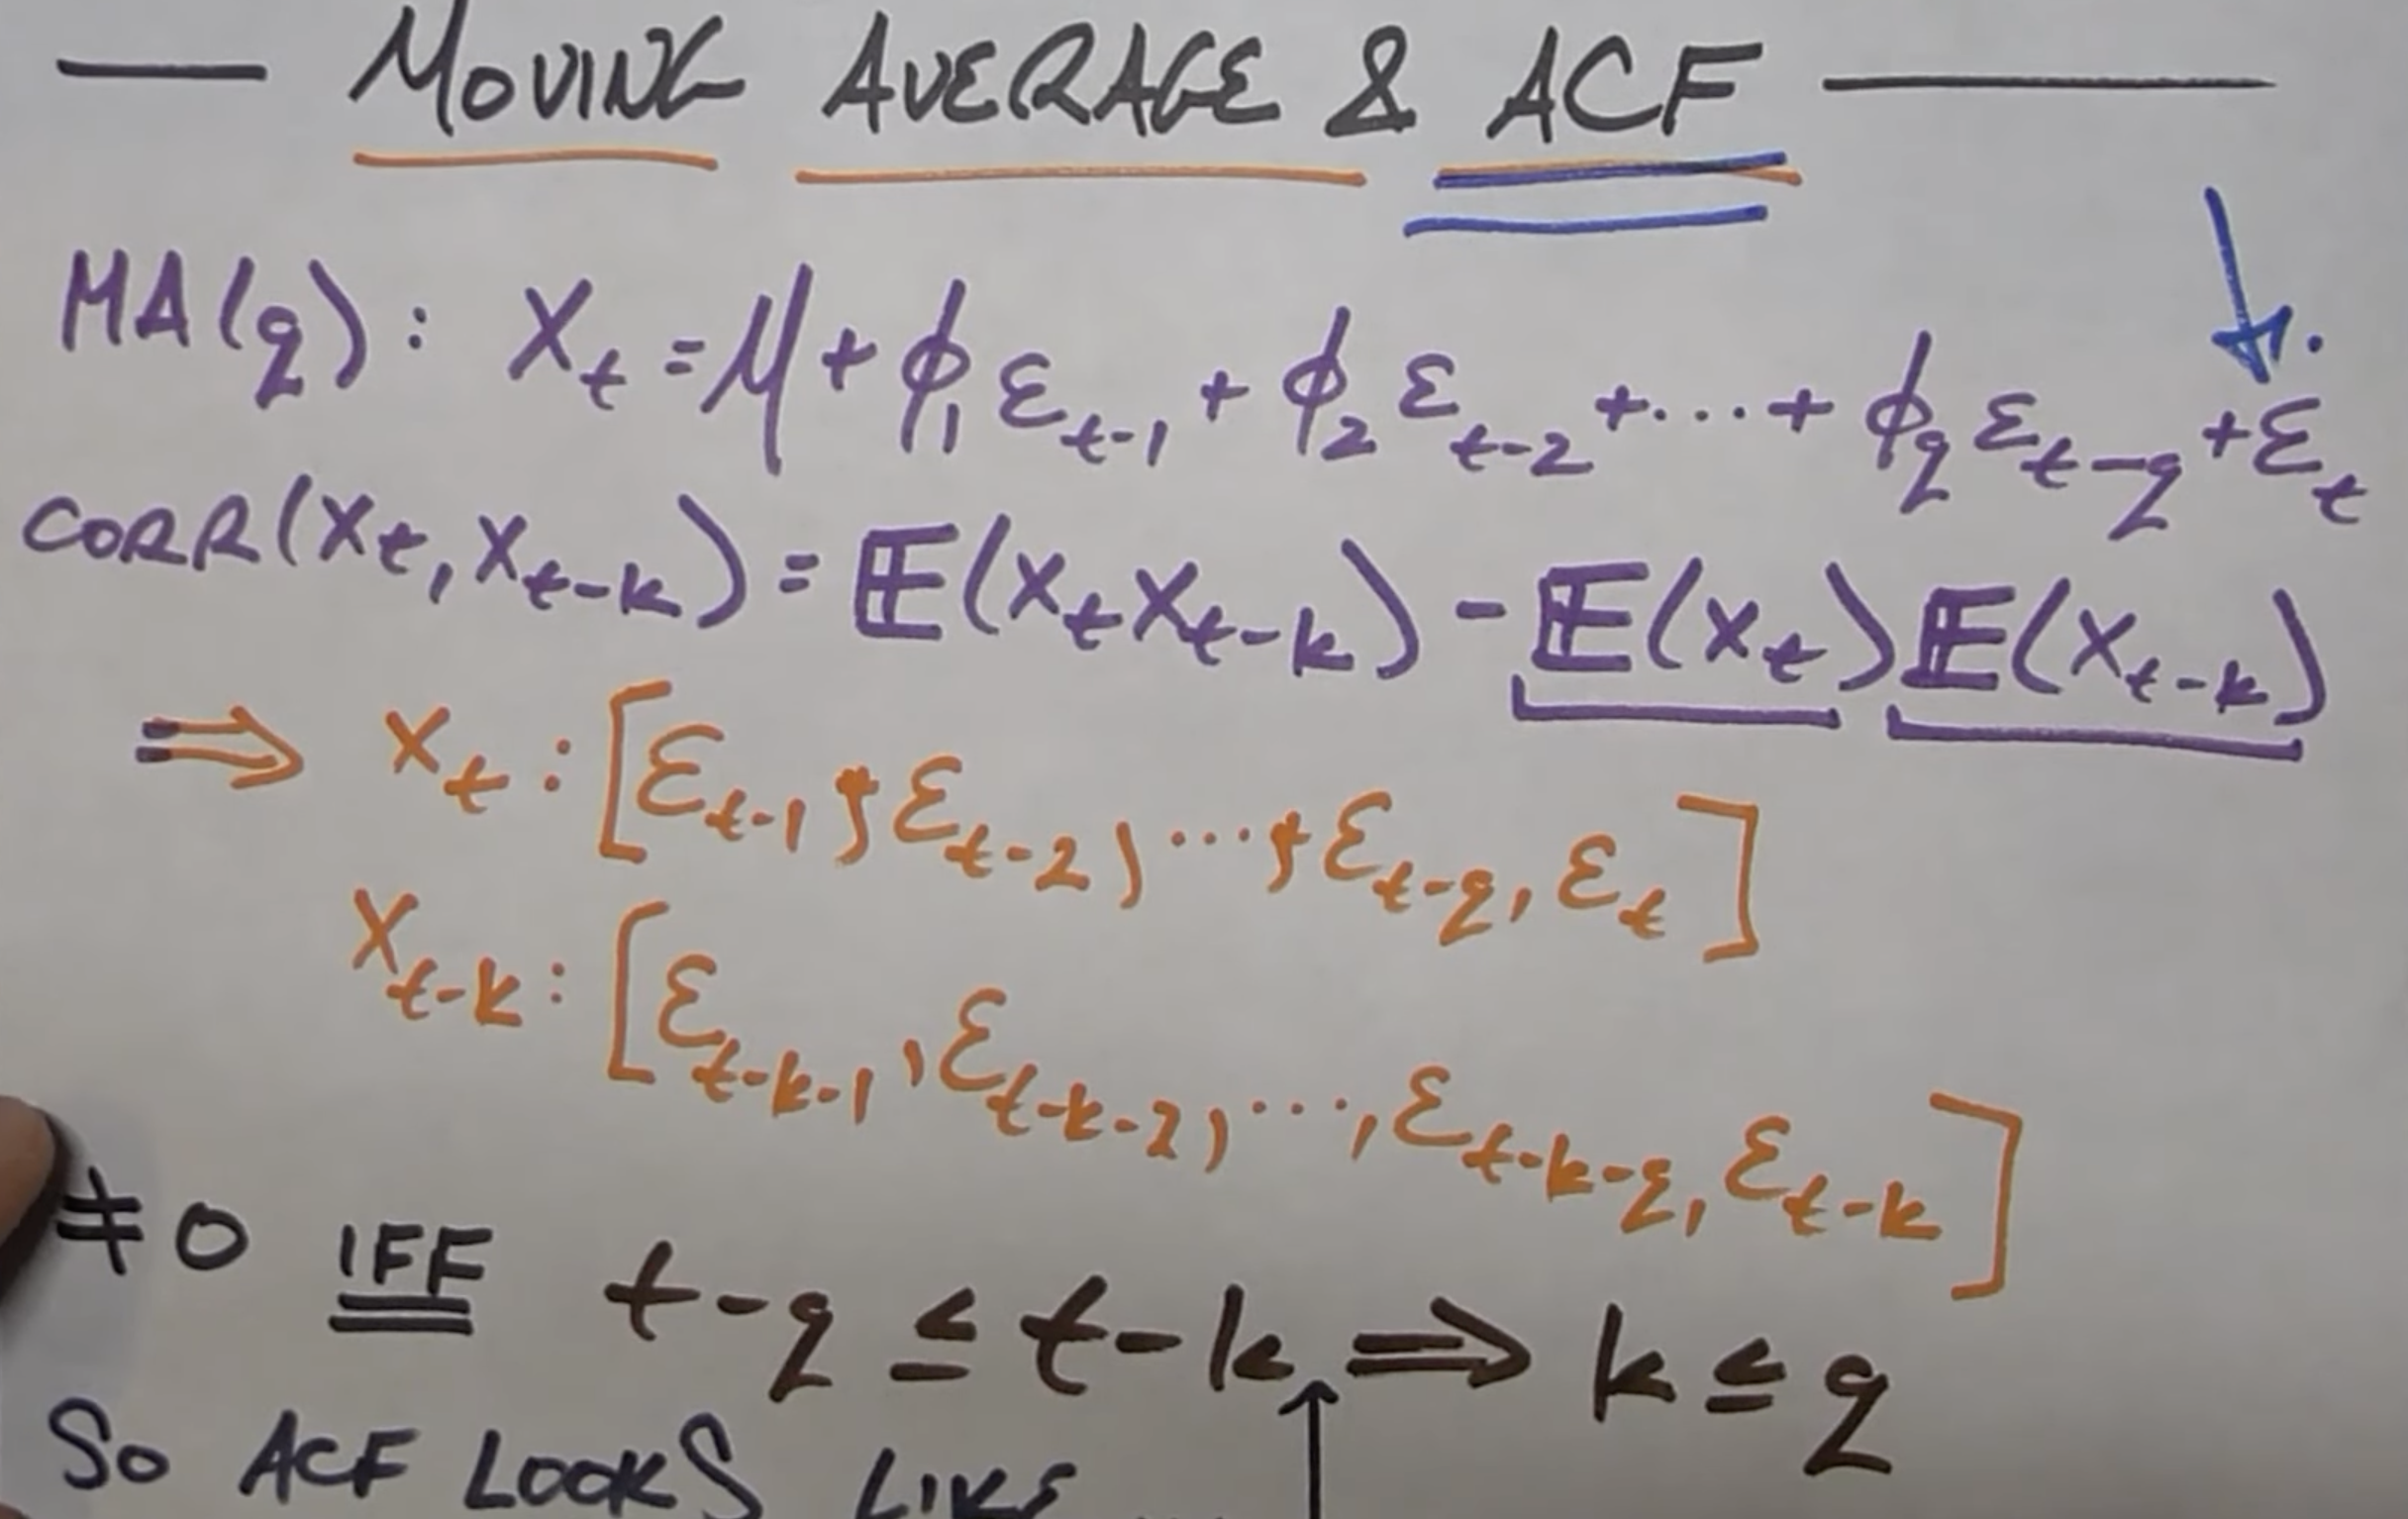 MOVING AVERAGE & ACF
MA(q): X_t = μ + ϕ_1 ε_{t-1} + ϕ_2 ε_{t-2} + ... + ϕ_q ε_{t-q} + ε_t
CORR(X_t, X_{t-k}) = E(X_t X_{t-k}) - E(X_t) E(X_{t-k})
⇒ X_t : [ε_{t-1}, ε_{t-2}, ..., ε_{t-q}, ε_t]
X_{t-k} : [ε_{t-k-1}, ε_{t-k-2}, ..., ε_{t-k-q}, ε_{t-k}]
≠ 0 IFF t-q ≤ t-k ⇒ k ≤ q
SO ACF LOOKS LIKE